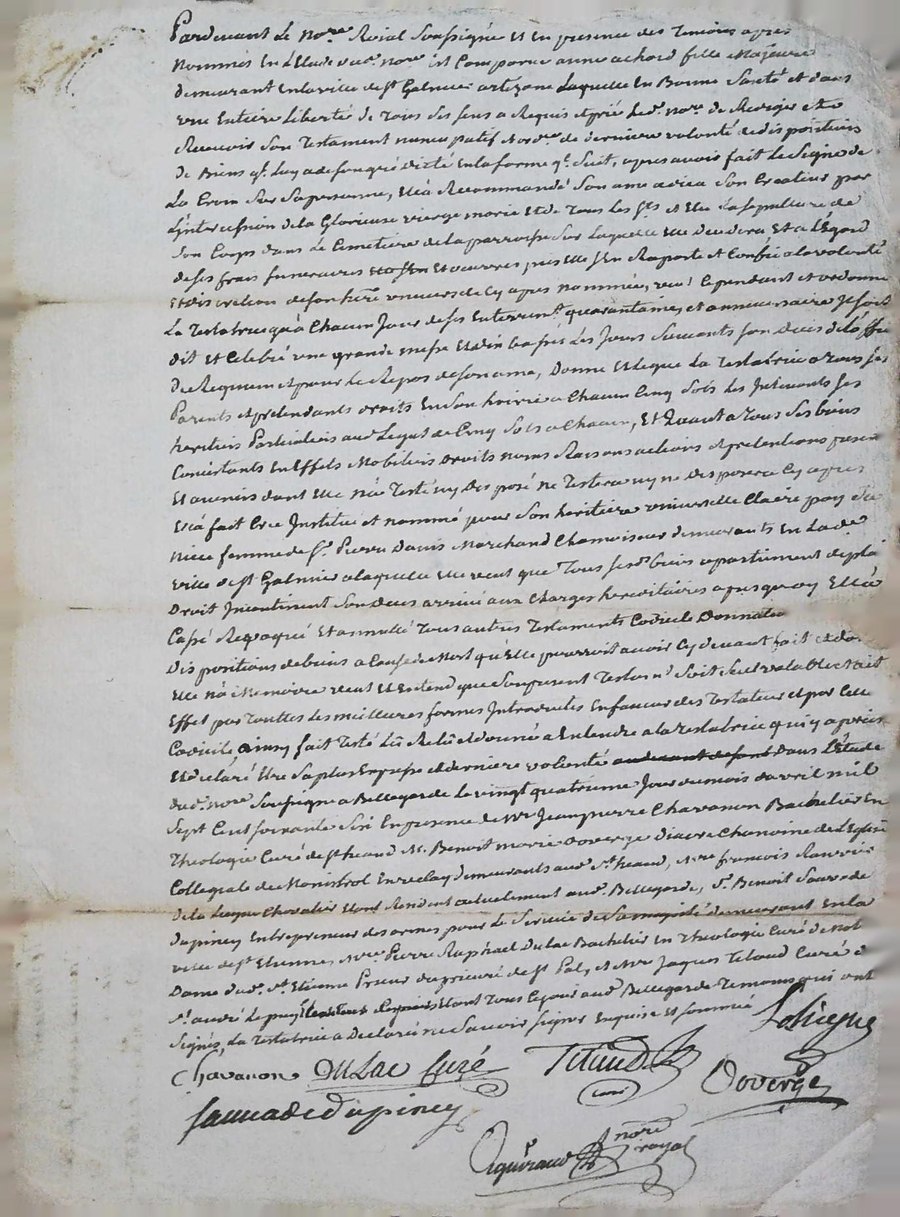 Pardevant Le nore Roial Soussigné Et En presence des Temoins apres
nommés En L'Etude dud. nore Est Comparue anne achard fille Majeure
demeurant En la ville de st Galmier artizane Laquelle En Bonne Santé et dans
une Entiere Liberté de Tous Ses Sens a Requis et prié Led. nore de Rediger et
Recevoir Son Testament nuncupatif et ord.re de derniere volonté et disposition
de Biens q'. Luy a de son gré dicté En la forme q'. Suit, apres avoir fait Le Signe de
La Croix Sur Sa personne, Elle a Recommandé Son ame a dieu Son Createur par
L'intercession de la Glorieuse vierge marie Et de Tous Les sts et Elu La sepulture de
Son Corps dans Le Cimetiere de la parroisse Sur Laquelle Elle decedera Et a L'Egard
de Ses frais funeraires Et oeuvres pies Elle S'En Raporte et Confie a la volonté
Et discretion de Son here universelle Cy apres nommée, veut Cependant et ordonne
La Testatrice qu'a Chacun Jour de Ses Enterrement quarantaine, et anniversaire Il Soit
dit Et Celebré une grande messe Et apres Les Jours Suivants Son deces
de Requiem Et pour Le Repos de Son ame, Donne Et Legue La Testatrice a Tous Ses
Parents et pretendants droits En Son hoirie a Chacun Cinq Sols Les Instituants Ses
heritiers Particuliers aud. Legat de Cinq Sols a Chacun, Et Quant a Tous Ses biens
Consistants En Effets Mobiliers Droits noms Raisons actions et pretentions presents
Et avenirs dont Elle n'a Testé ny Disposé ne Testera ny ne Disposera Cy apres
Elle a fait Cree Institué et nommé pour Son heritiere universelle Claire pay Sa
niece femme de Sr. Pierre Danis Marchand Chamoiseur demeurants En Lade
ville de st Galmier a laquelle Elle veut que Tous Sesd. biens apartiennent de plain
Droit Incontinent Son deces arrivé aux Charges hereditaires apres quoy Elle a
Cassé Revoqué Et annullé Tous autres Testaments Codicile Donnation
Dispositions de biens a Cause de Mort qu'Elle pourroit avoir Cy devant fait et dont
Elle n'a Memoire veut Et Entend que Son present Testamt Soit Seul valable et ait
Effet par Touttes Les meilleures formes Introduites En faveur des Testateurs et par Celle
Codicile ainsy fait Testé Lû Relû et donné a Entendre a la Testatrice qui y a persisté
Et declaré Etre Sa plus Expresse et derniere volonté audevant de font Dans L'Etude
dud. nore Soussigné a Bellegarde Le vingt quatrieme Jour du mois d'avril mil
Sept Cent Soixante Six En presence de Mre Jean pierre Chavanon Bachelier En
Theologie Curé de st heand M. Benoit marie Ooverge Diacre Chanoine de L'Eglise
Collegiale de Monistrol En velay demeurants aud. St. heand, Mre francois
de la Chevalier Etant Residant actuellement aud. Bellegarde, Sr. Benoit Sauvade
Dupiney Entrepreneur des armes pour Le Service de Sa majesté demeurant En la
ville de St. Etienne, Mre Pierre Raphaël Dulac Bachelier En Theologie Curé de Notre
Dame dud. St. Etienne Prieur du prieuré de st Pal, et Mre Jaques Tetaud Curé de
St. andré Le puy Etant Tous Ce jour aud. Bellegarde Temoins qui ont
Signés, La Testatrice a Declaré ne Savoir Signer Enquise et Sommée
Chavanon Dulac Curé Tetaud curé Ooverge
Sauvade Dupiney
nore
royal